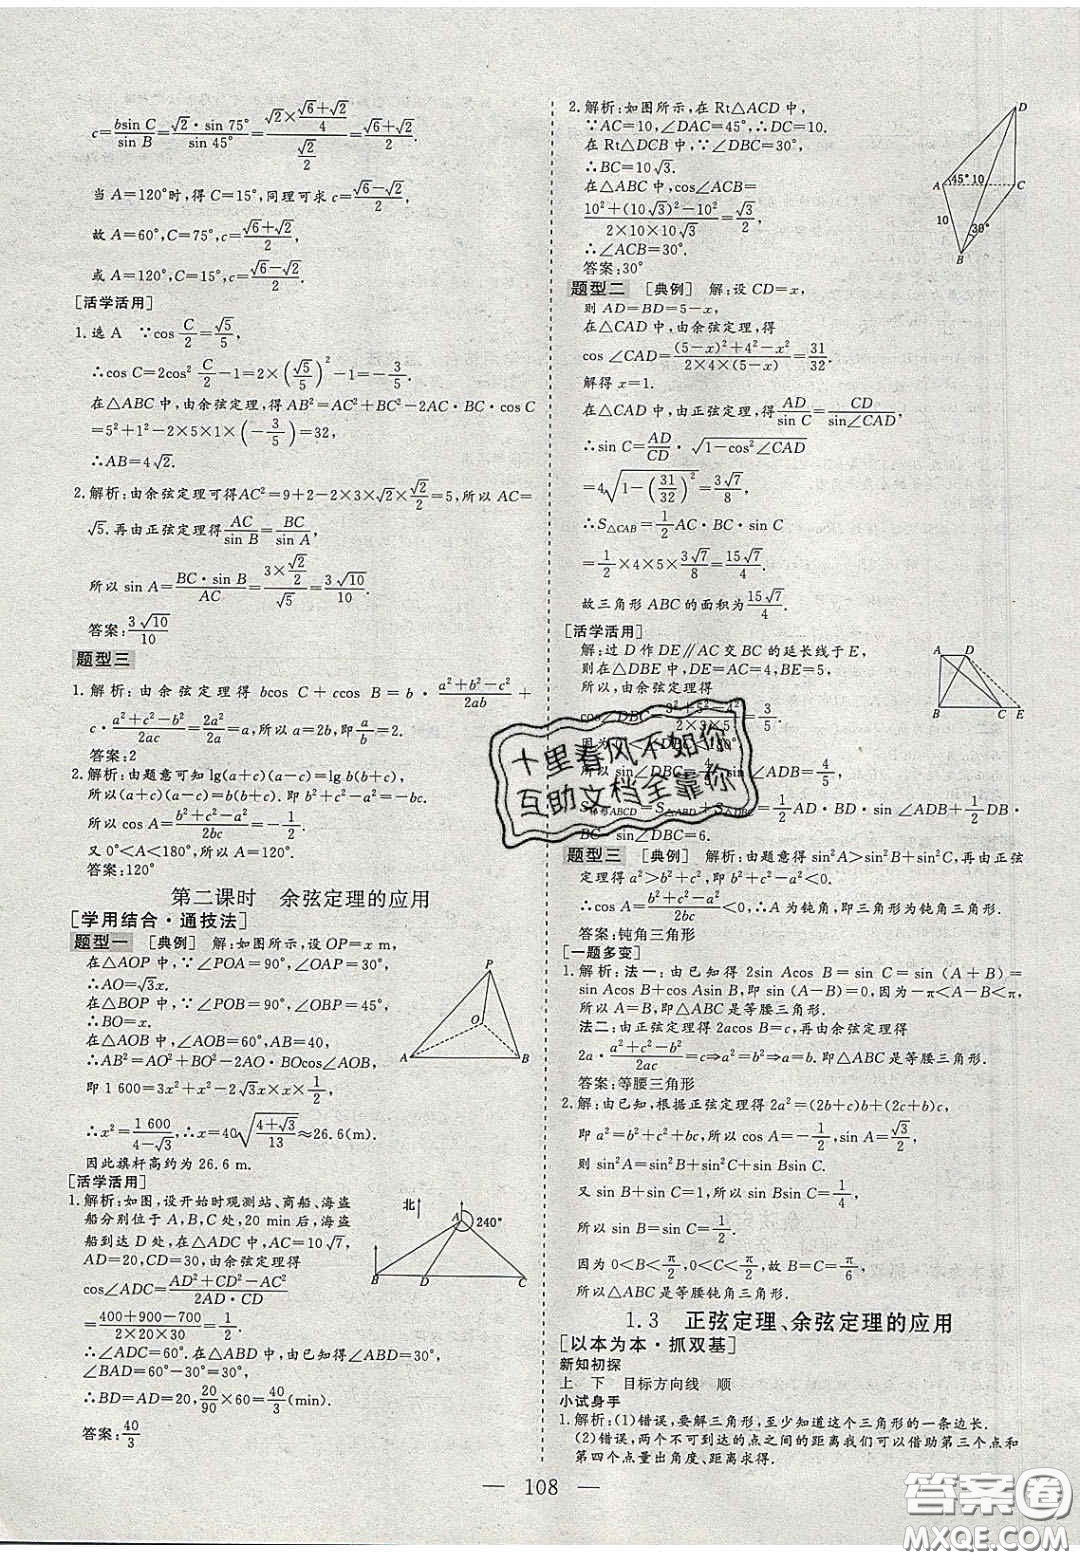 c=\frac{bsin C}{sin B}=\frac{\sqrt{2}·sin 75°}{sin 45°}=\frac{\sqrt{2}×\frac{\sqrt{6}+\sqrt{2}}{4}}{\frac{\sqrt{2}}{2}}=\frac{\sqrt{6}+\sqrt{2}}{2}.
当A=120°时,得C=15°,同理可求c=\frac{\sqrt{6}-\sqrt{2}}{2},
故A=60°,C=75°,c=\frac{\sqrt{6}+\sqrt{2}}{2},
或A=120°,C=15°,c=\frac{\sqrt{6}-\sqrt{2}}{2}.
[活学活用]
1.选A ∵cos\frac{C}{2}=\frac{\sqrt{5}}{5},
∴cos C=2cos²\frac{C}{2}-1=2×(\frac{\sqrt{5}}{5})²-1=-\frac{3}{5}.
在△ABC中,由余弦定理,得AB²=AC²+BC²-2AC·BC·cos C
=5²+1²-2×5×1×(-\frac{3}{5})=32,
∴AB=4\sqrt{2}.
2.解析:由余弦定理可得AC²=9+2-2×3×\sqrt{2}×\frac{\sqrt{2}}{2}=5,所以AC=
\sqrt{5}.再由正弦定理得\frac{AC}{sin B}=\frac{BC}{sin A},
所以sin A=\frac{BC·sin B}{AC}=\frac{3×\frac{\sqrt{2}}{2}}{\sqrt{5}}=\frac{3\sqrt{10}}{10}.
答案:\frac{3\sqrt{10}}{10}
题型三
1.解析:由余弦定理得bcos C+ccos B=b·\frac{a²+b²-c²}{2ab}+
c·\frac{a²+c²-b²}{2ac}=\frac{2a²}{2a}=a,所以a=2b,即\frac{a}{b}=2.
答案:2
2.解析:由题意可知lg(a+c)(a-c)=lg b(b+c),
所以(a+c)(a-c)=b(b+c).即b²+c²-a²=-bc.
所以cos A=\frac{b²+c²-a²}{2bc}=-\frac{1}{2}.
又0°<A<180°,所以A=120°.
答案:120°
第二课时 余弦定理的应用
[学用结合·通技法]
题型一 [典例] 解:如图所示,设OP=x m,
在△AOP中,∵∠POA=90°,∠OAP=30°,
∴AO=\sqrt{3}x.
在△BOP中,∵∠POB=90°,∠OBP=45°,
∴BO=x.
在△AOB中,∠AOB=60°,AB=40,
∴AB²=AO²+BO²-2AO·BOcos∠AOB,
即1 600=3x²+x²-2\sqrt{3}x×x×\frac{1}{2},
∴x²=\frac{1 600}{4-\sqrt{3}},∴x=40\sqrt{\frac{4+\sqrt{3}}{13}}≈26.6(m).
因此旗杆高约为26.6 m.
P
O
A
B
[活学活用]
1.解析:如图,设开始时观测站、商船、海盗
船分别位于A,B,C处,20 min后,海盗
船到达D处,在△ADC中,AC=10\sqrt{7},
AD=20,CD=30,由余弦定理得
cos∠ADC=\frac{AD²+CD²-AC²}{2AD·CD}
=\frac{400+900-700}{2×20×30}=\frac{1}{2}.
∴∠ADC=60°.在△ABD中,由已知得∠ABD=30°,
∠BAD=60°-30°=30°,
∴BD=AD=20,\frac{20}{90}×60=\frac{40}{3}(min).
答案:\frac{40}{3}
北
A
240°
B
D
C
2.解析:如图所示,在Rt△ACD中,
∵AC=10,∠DAC=45°,∴DC=10.
在Rt△DCB中,∵∠DBC=30°,
∴BC=10\sqrt{3}.
在△ABC中,cos∠ACB=
\frac{10²+(10\sqrt{3})²-10²}{2×10×10\sqrt{3}}=\frac{\sqrt{3}}{2},
∴∠ACB=30°.
答案:30°
D
A
45°
10
C
10
30°
B
题型二 [典例] 解:设CD=x,
则AD=BD=5-x,
在△CAD中,由余弦定理,得
cos ∠CAD=\frac{(5-x)²+4²-x²}{2×4×(5-x)}=\frac{31}{32}.
解得x=1.
在△CAD中,由正弦定理,得\frac{AD}{sin C}=\frac{CD}{sin∠CAD},
∴sin C=\frac{AD}{CD}·\sqrt{1-cos²∠CAD}
=4\sqrt{1-(\frac{31}{32})²}=\frac{3\sqrt{7}}{8},
∴S△CAB=\frac{1}{2}AC·BC·sin C
=\frac{1}{2}×4×5×\frac{3\sqrt{7}}{8}=\frac{15\sqrt{7}}{4}.
故三角形ABC的面积为\frac{15\sqrt{7}}{4}.
[活学活用]
解:过D作DE∥AC交BC的延长线于E,
则在△DBE中,DE=AC=4,BE=5,
所以,由余弦定理得
cos∠DBC=\frac{3²+5²-4²}{2×3×5}=\frac{3}{5}.
因为0°<∠DBC<180°
所以sin∠DBC=\frac{4}{5} sin ∠ADB=\frac{4}{5},
ABCD=S△ABD+S \frac{1}{2}AD·BD·sin ∠ADB+\frac{1}{2}DB·
BC sin∠DBC=6.
A
D
B
C
E
十里春风不如你
互助文档全靠你
题型三 [典例] 解析:由题意得sin²A>sin²B+sin²C,再由正弦
定理得a²>b²+c²,即b²+c²-a²<0.
∴cos A=\frac{b²+c²-a²}{2bc}<0,∴A为钝角,即三角形为钝角三角形.
答案:钝角三角形
[一题多变]
1.解析:法一:由已知得2sin Acos B=sin C=sin (A+B)=
sin Acos B+cos Asin B,即sin (A-B)=0,因为-π<A-B<π,
所以A=B,即△ABC是等腰三角形.
法二:由正弦定理得2acos B=c,再由余弦定理得
2a·\frac{a²+c²-b²}{2ac}=c⇒a²=b²⇒a=b.即△ABC是等腰三角形.
答案:等腰三角形
2.解:由已知,根据正弦定理得2a²=(2b+c)b+(2c+b)c,
即a²=b²+c²+bc,所以cos A=-\frac{1}{2},sin A=\frac{\sqrt{3}}{2},
则sin²A=sin²B+sin²C+sin Bsin C.
又sin B+sin C=1,所以sin Bsin C=\frac{1}{4},
所以sin B=sin C=\frac{1}{2}.
因为0<B<\frac{π}{2},0<C<\frac{π}{2},故B=C=\frac{π}{6},
所以△ABC是等腰钝角三角形.
1.3 正弦定理、余弦定理的应用
[以本为本·抓双基]
新知初探
上 下 目标方向线 顺
小试身手
1.解析:(1)错误,要解三角形,至少知道这个三角形的一条边长.
(2)错误,两个不可到达的点之间的距离我们可以借助第三个点和
第四个点量出角度、距离求得.
— 108 —
答案圈
MXQE.COM